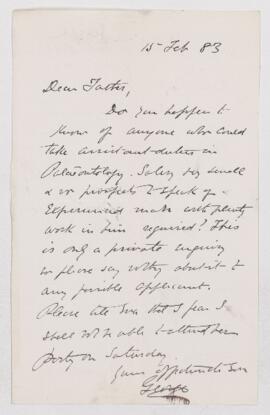 15 Feb 83
Dear Father,
Do you happen to
know of anyone who could
take assistant duties in
Palæontology. Salary very small
& no prospects to speak of
Experienced man with plenty
work in him required? This
is only a private enquiry
so please say nothing about it to
any possible applicant.
Please tell that I fear I
shall not be able to attend her
party on Saturday
Your affectionate Son
George